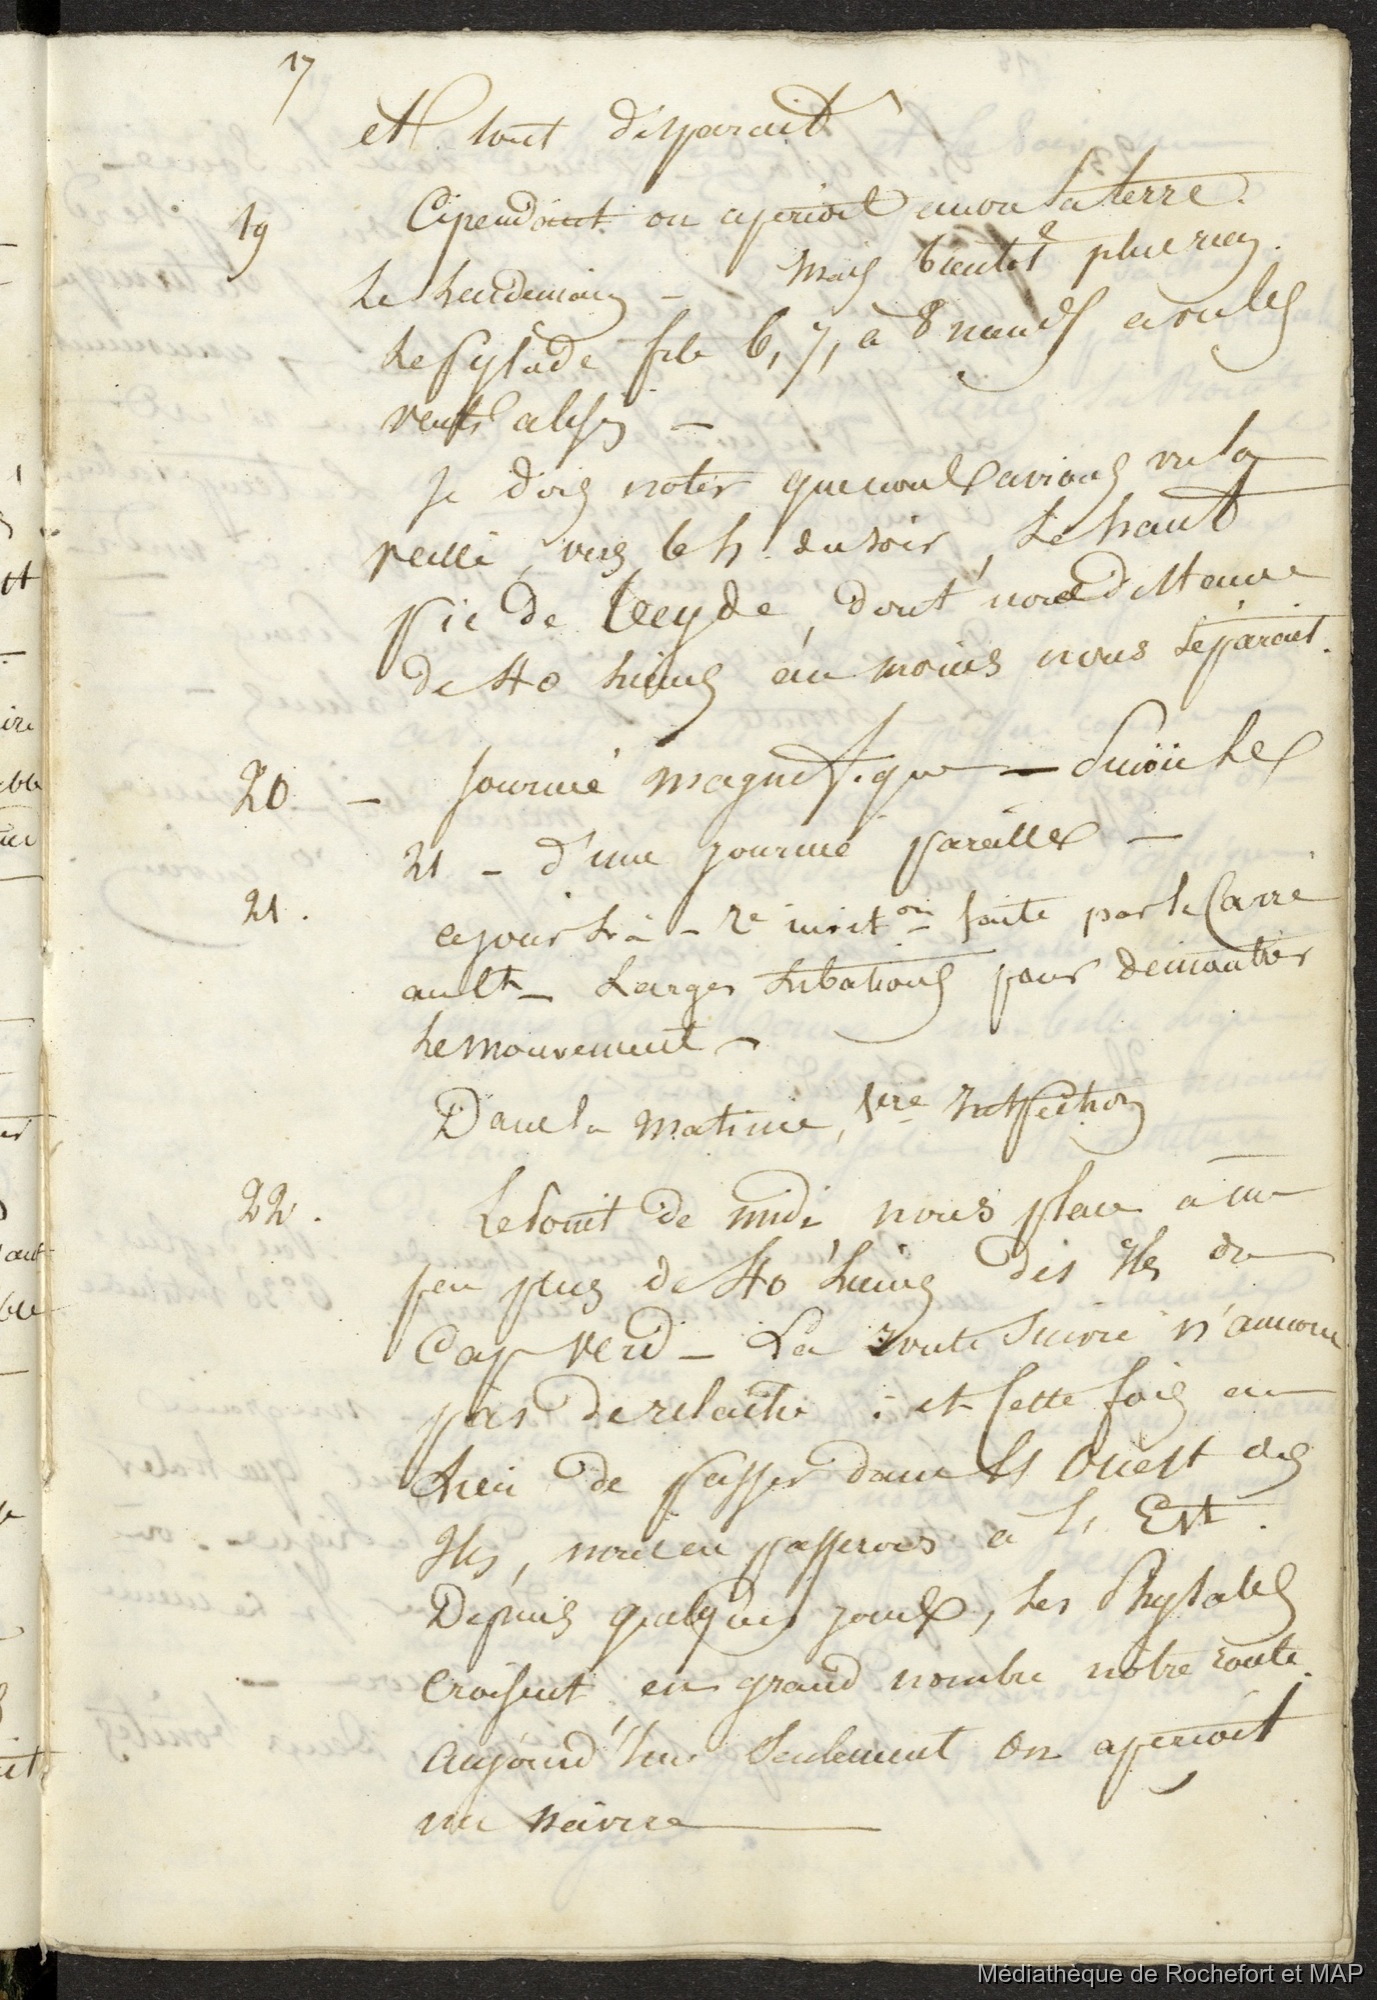 17
et tout disparait
19 Cependant on aperçoit encor la terre
le lendemain - Mais bientôt plus rien.
Le Pylade file 6, 7, à 8 nœuds avec les
vents alisés -
Je dois noter que nous avions vu la
veille, vers 6 h. du soir, le haut
pic de Teyde, dont une distance
de 40 lieues au moins nous séparait.
20 - Journée magnifique - Suivie le
21 - d'une journée pareille -
21. ce jour là - 2e faite par le Carré
- Larges libations pour démontrer
le mouvement -
Dans la matinée, 1ere Inspection
22. Le point de midi nous place à un
peu plus de 40 lieues des Iles du
Cap Verd - La route suivie n'annonce
pas de relâche : et cette fois au
lieu de passer dans l'Ouest des
Iles, nous en passerons à l'Est.
Depuis quelques jours, les Physales
croisent en grand nombre notre route.
aujourd'hui seulement on aperçoit
un navire
Médiathèque de Rochefort et MAP